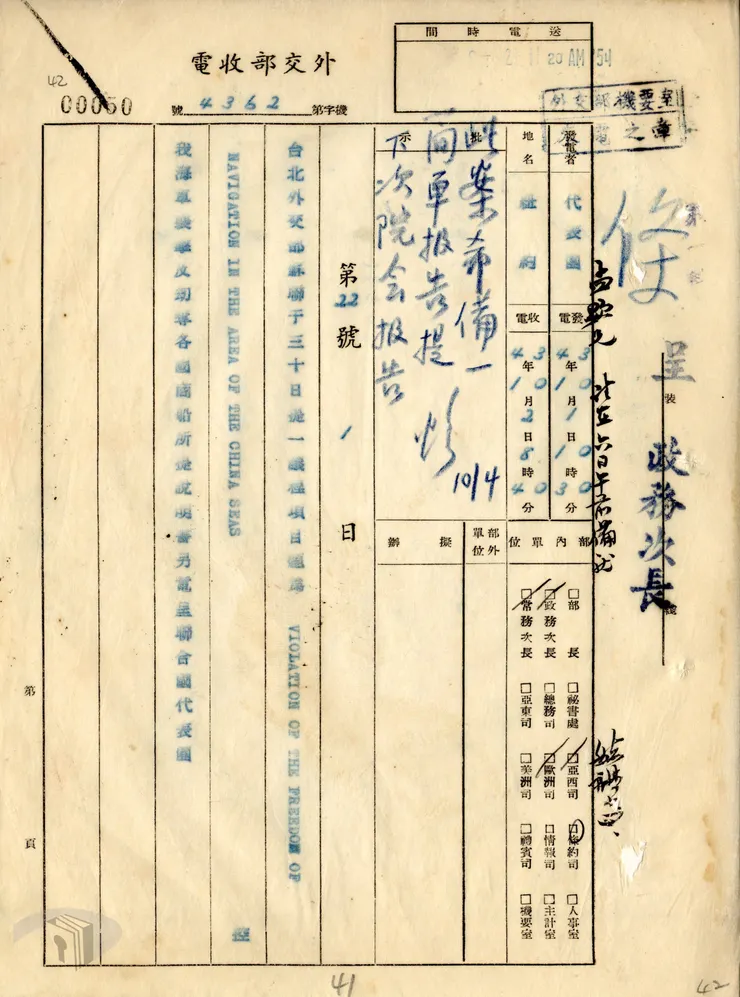 外交部收電
機字第 4362 號
42
00050
送電時間
20 AM '54
外交部機要室
電之章
呈 政務次長
發電者 代表團
地名 紐約
發電 43年10月1日10時30分
收電 43年10月2日8時40分
批示
此案希備一
簡單報告提
下次院會報告
10/4
部內單位
□部長 □祕書處 □亞西司 □條約司 □人事室
□政務次長 □總務司 □歐洲司 □情報司 □主計室
□常務次長 □亞東司 □美洲司 □禮賓司 □機要室
部外單位
擬辦
第22號 1日
台北外交部蘇聯于三十日提一議程項目題為 VIOLATION OF THE FREEDOM OF
NAVIGATION IN THE AREA OF THE CHINA SEAS
我海軍襲擊及劫奪各國商船所提說明書另電呈聯合國代表團
第 頁
裝
41
42